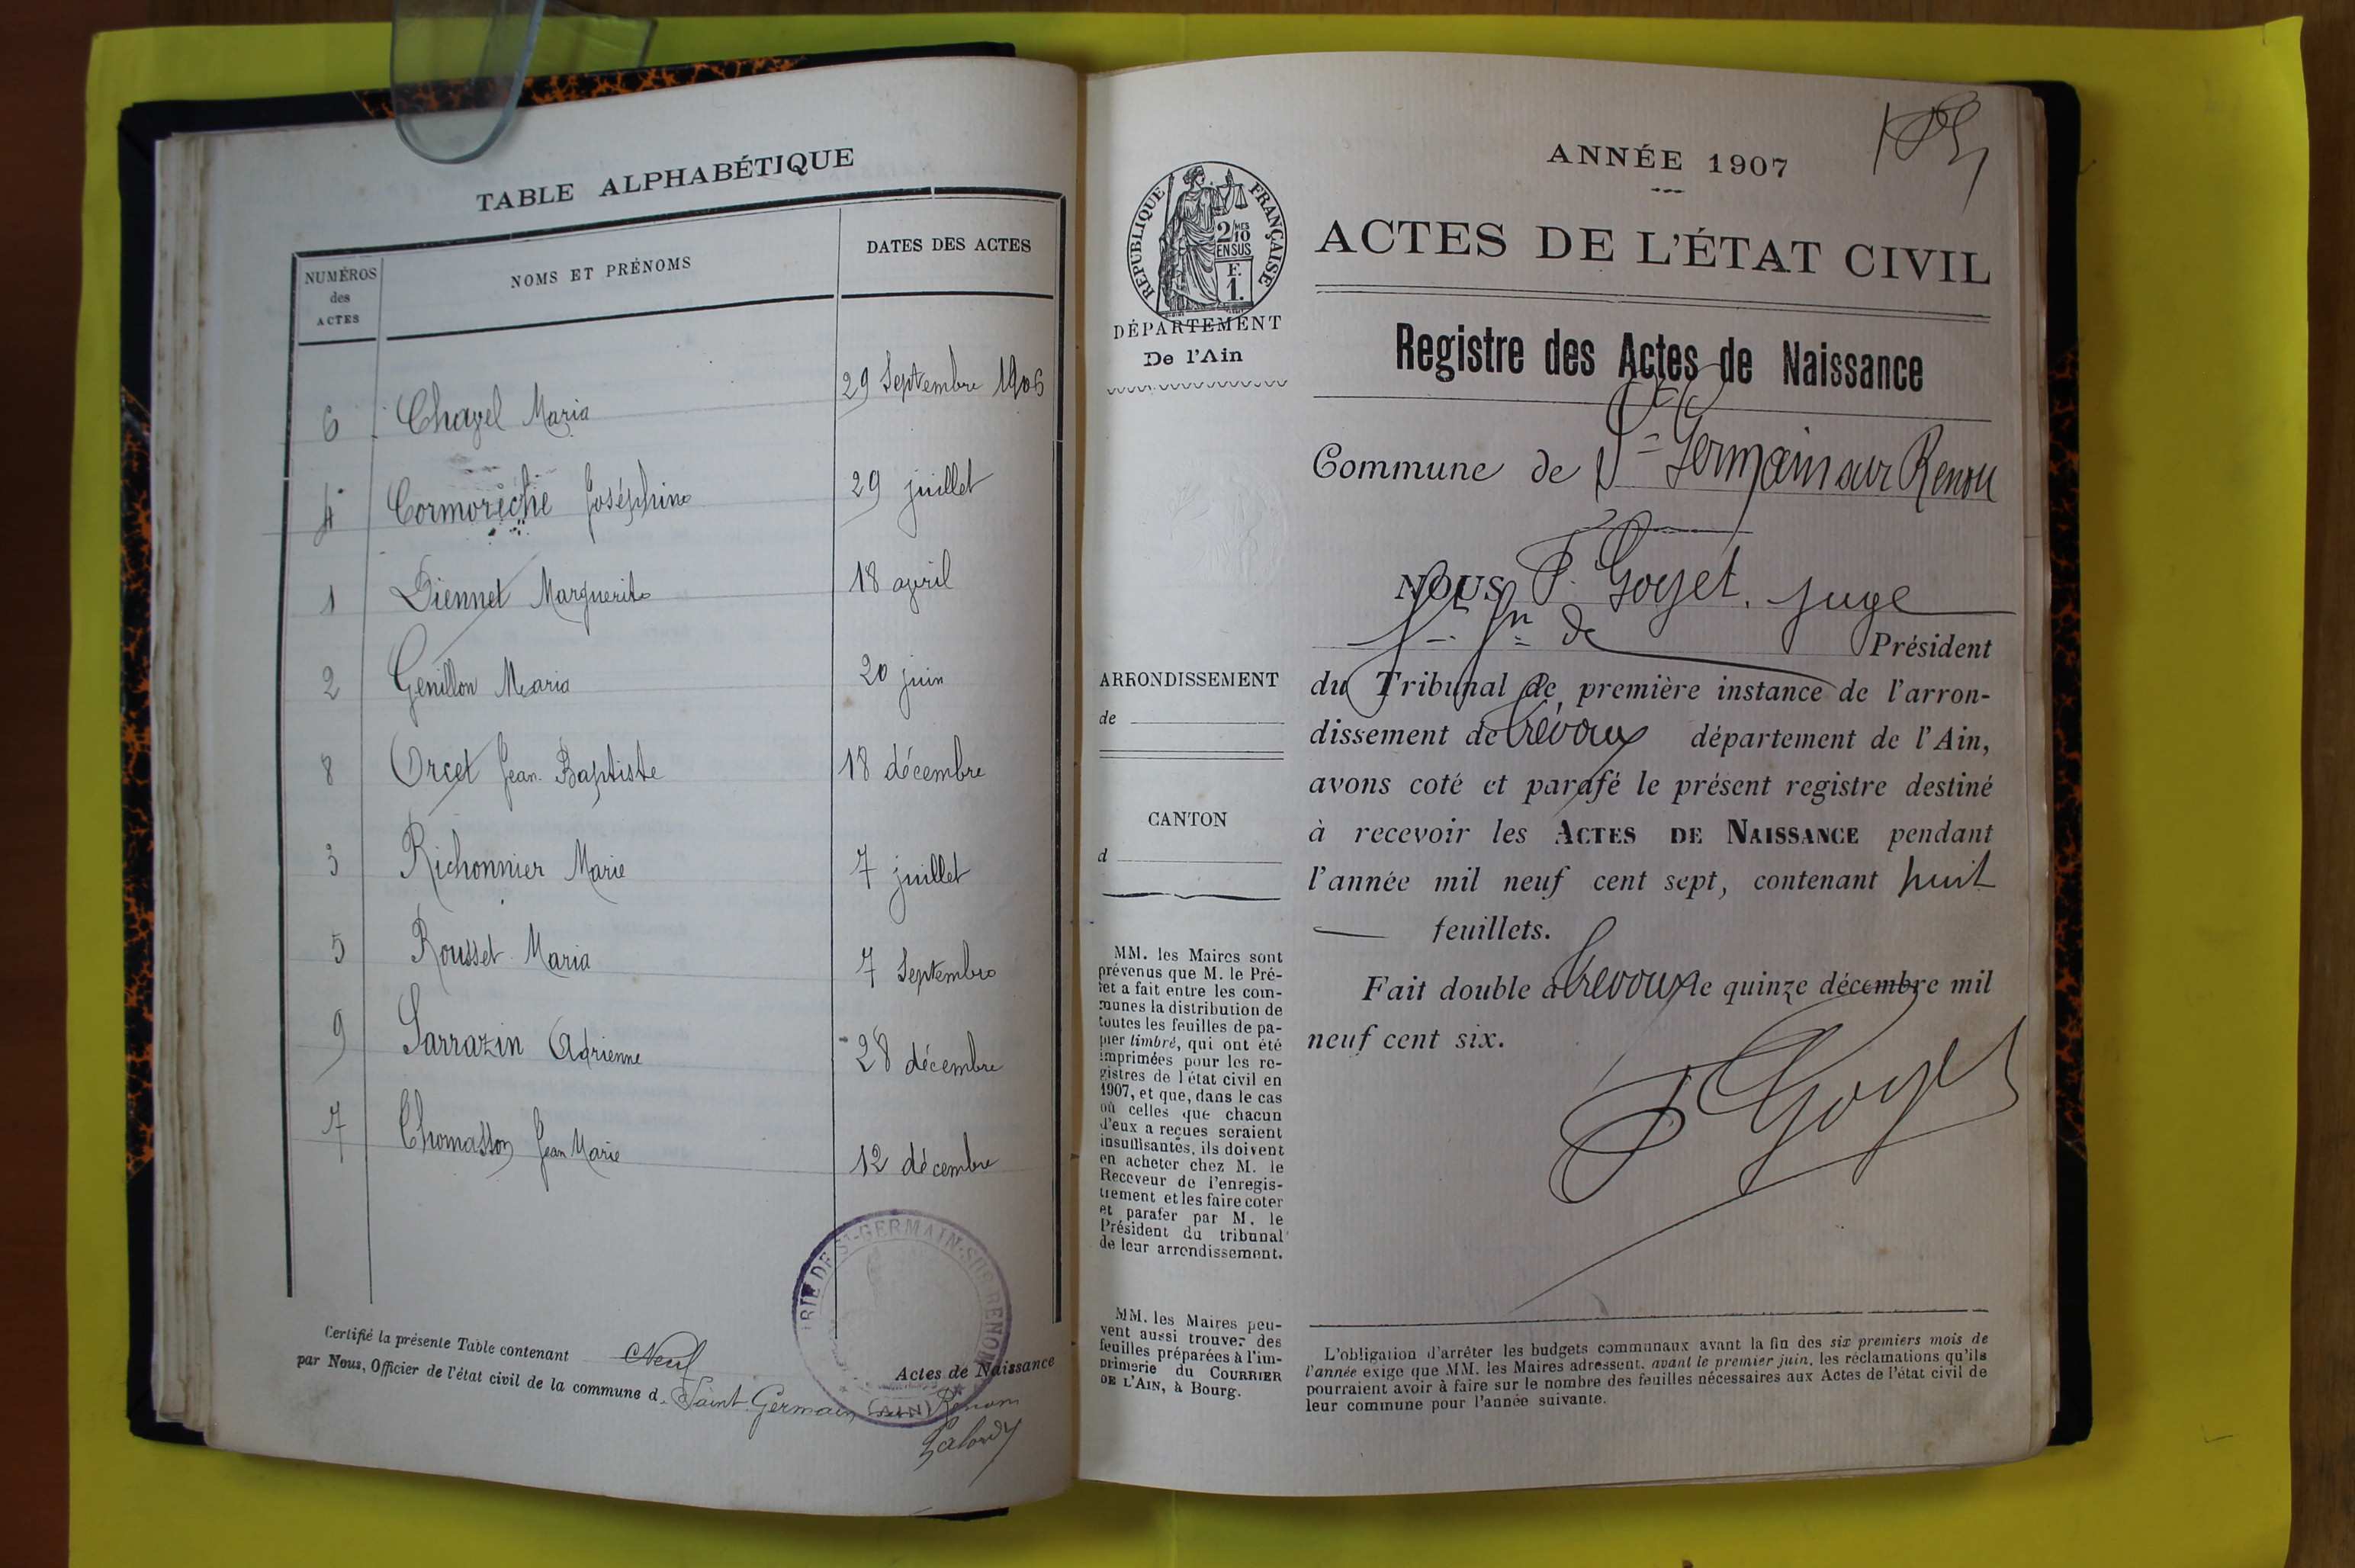 TABLE ALPHABÉTIQUE
NUMÉROS des ACTES
NOMS ET PRÉNOMS
DATES DES ACTES
6 Chazel Maria 29 Septembre 1906
4 Cormorèche Joséphine 29 juillet
1 Diennet Marguerite 18 avril
2 Genillon Maria 20 juin
8 Orcet Jean-Baptiste 18 décembre
3 Richonnier Marie 7 juillet
5 Rousset Maria 7 Septembre
9 Sarrazin Adrienne 28 décembre
7 Thomasson Jean Marie 12 décembre
Certifié la présente Table contenant Neuf Actes de Naissance
par Nous, Officier de l'état civil de la commune d. Saint Germain sur Renom
RIE DE ST-GERMAIN-SUR-RENOM
(AIN)
ANNÉE 1907
RÉPUBLIQUE FRANÇAISE
2/10 MES
EN SUS
F.
1.
ACTES DE L'ÉTAT CIVIL
DÉPARTEMENT
De l'Ain
Registre des Actes de Naissance
Commune de St Germain sur Renon
NOUS, P. Goyet, juge
Président
du Tribunal de première instance de l'arron-
dissement de Trévoux département de l'Ain,
avons coté et parafé le présent registre destiné
à recevoir les ACTES DE NAISSANCE pendant
l'année mil neuf cent sept, contenant huit
feuillets.
Fait double à Trévoux le quinze décembre mil
neuf cent six.
P Goyet
ARRONDISSEMENT
de
CANTON
d
MM. les Maires sont
prévenus que M. le Pré-
fet a fait entre les com-
munes la distribution de
toutes les feuilles de pa-
pier timbré, qui ont été
imprimées pour les re-
gistres de l'état civil en
1907, et que, dans le cas
où celles que chacun
d'eux a reçues seraient
insuffisantes, ils doivent
en acheter chez M. le
Receveur de l'enregis-
trement et les faire coter
et parafer par M. le
Président du tribunal
de leur arrondissement.
MM. les Maires peu-
vent aussi trouver des
feuilles préparées à l'im-
primerie du COURRIER
DE L'AIN, à Bourg.
L'obligation d'arrêter les budgets communaux avant la fin des six premiers mois de
l'année exige que MM. les Maires adressent, avant le premier juin, les réclamations qu'ils
pourraient avoir à faire sur le nombre des feuilles nécessaires aux Actes de l'état civil de
leur commune pour l'année suivante.